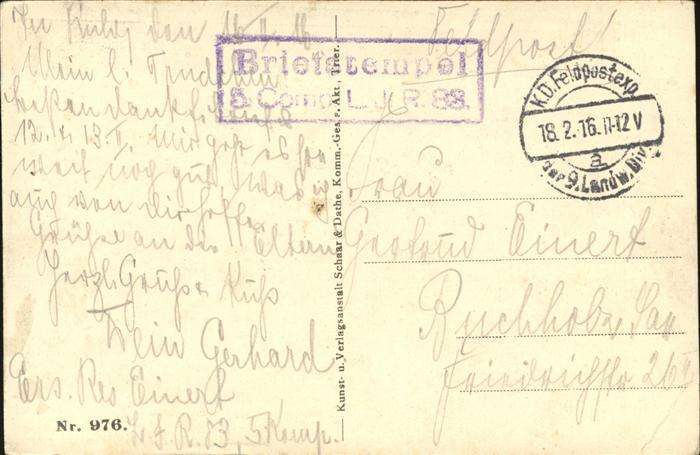 Im Felde, den 16.II.16.
Mein l. Trudchen!
Besten Dank
12. u. 13.I. Mir geht es so
weit noch gut, was
auch von Dir hoffe.
Grüße an die Eltern
Herzl. Gruß u. Kuß
Dein Gerhard
Ers. Res Einert
L. J. R. 83, 5 Komp.
Nr. 976.
Kunst- u. Verlagsanstalt Schaar & Dathe, Komm.-Ges. a. Akt., Trier.
Briefstempel
5. Comp. L. J. R. 83.
Feldpost!
K.D. Feldpostexp.
18.2.16.11-12 V
a
der 9. Landw. Div.
Frau
Gertrud Einert
Buchholz, Sa
Friedrichstr